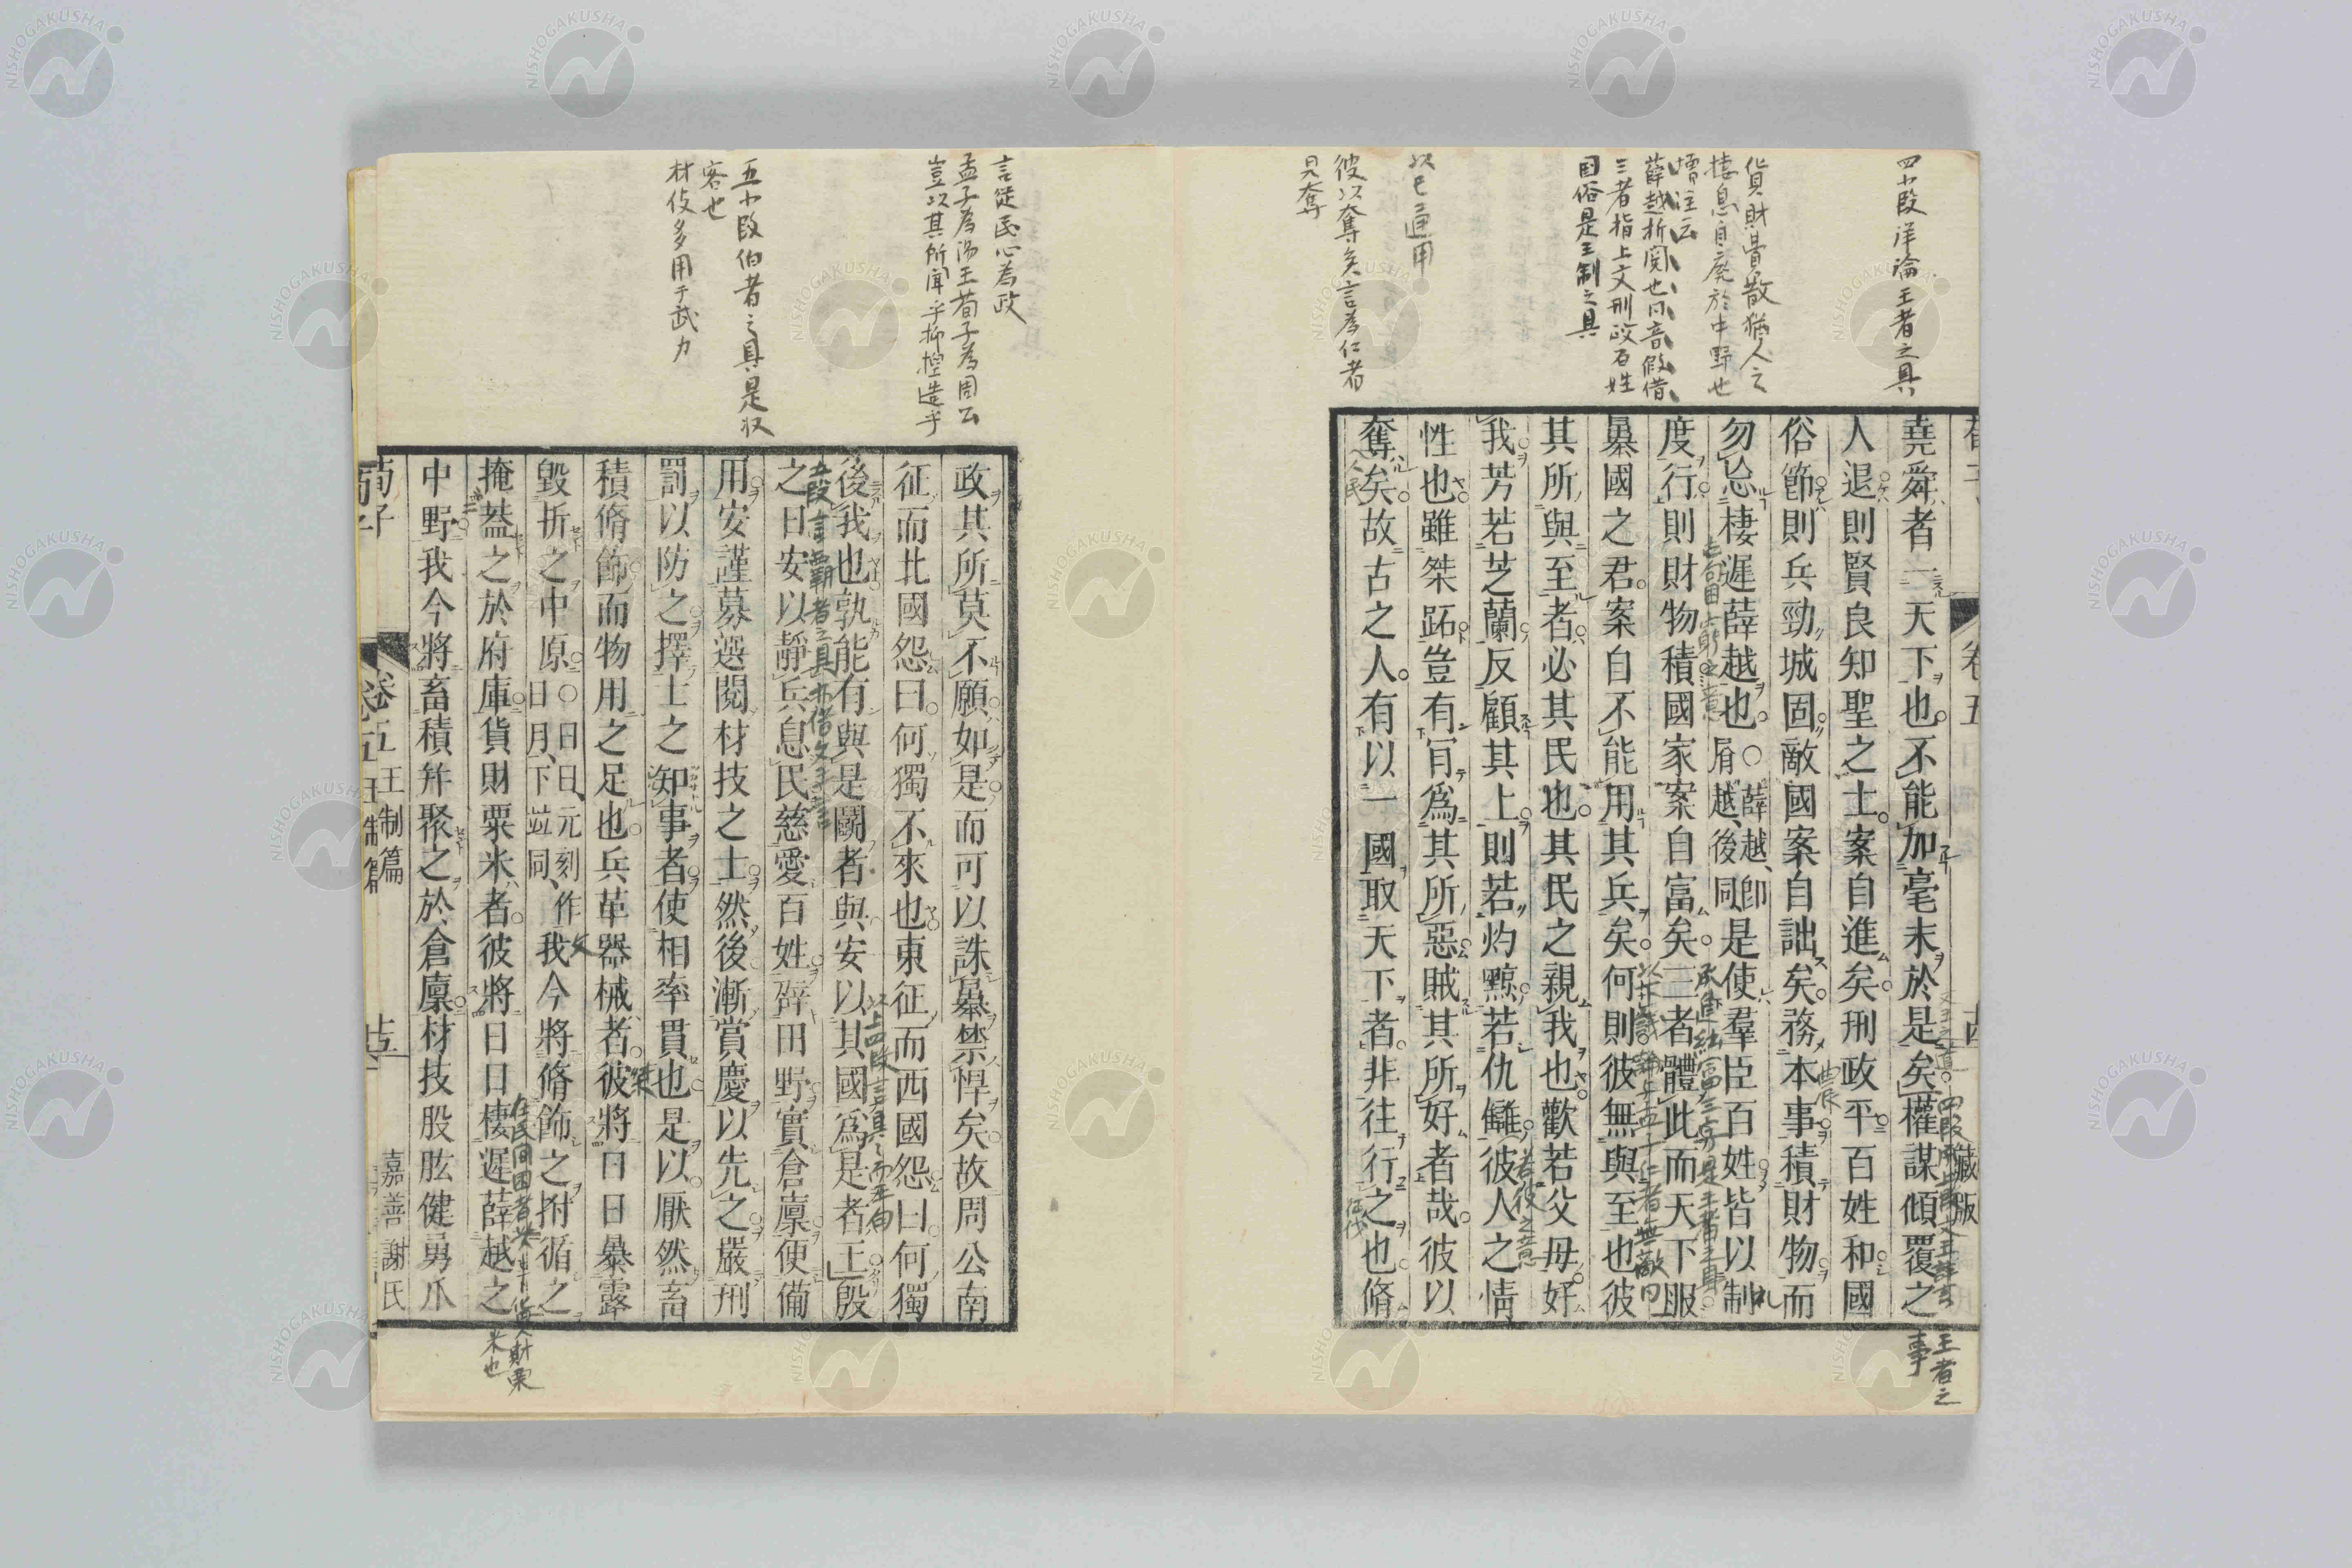 四小段詳論王者之具
貨財費散猶人之
棲息自廢於中野也
薛越折閱也同音假借
三者指上文刑政百姓
国俗是王制之具
以已通用
彼以奪矣言為仁者
見奪
堯舜者一天下也不能加毫末於是矣權謀傾覆之
人退則賢良知聖之士案自進矣刑政平百姓和國
俗節則兵勁城固敵國案自詘矣務本事積財物而
勿忘棲遲薛越也○薛越、卽
屑越、後同、
是使羣臣百姓皆以制
度行則財物積國家案自富矣三者體此而天下服
暴國之君案自不能用其兵矣何則彼無與至也彼
其所與至者必其民也其民之親我也歡若父母好
我芳若芝蘭反顧其上則若灼黥若仇讎彼人之情
性也雖桀跖豈有肎爲其所惡賊其所好者哉彼以
奪矣故古之人有以一國取天下者非往行之也脩
王者之
事
言從民心為政
孟子為湯王荀子為周公
豈以其所聞乎抑捏造乎
五小段伯者之具是収
客也
材伎多用于武力
政其所莫不願如是而可以誅暴禁悍矣故周公南
征而北國怨曰何獨不來也東征而西國怨曰何獨
後我也孰能有與是鬬者與安以其國爲是者王殷
之日安以靜兵息民慈愛百姓辟田野實倉廩便備
用安謹募選閱材技之士然後漸賞慶以先之嚴刑
罰以防之擇士之知事者使相率貫也是以厭然畜
積脩飾而物用之足也兵革器械者彼將日日暴露
毀折之中原○日日、元刻作
日月、下竝同、
我今將脩飾之拊循之
掩葢之於府庫貨財粟米者彼將日日棲遲薛越之
中野我今將畜積幷聚之於倉廩材技股肱健勇爪
荀子
卷五
王制篇
十五
嘉善謝氏
NISHOGAKUSHA